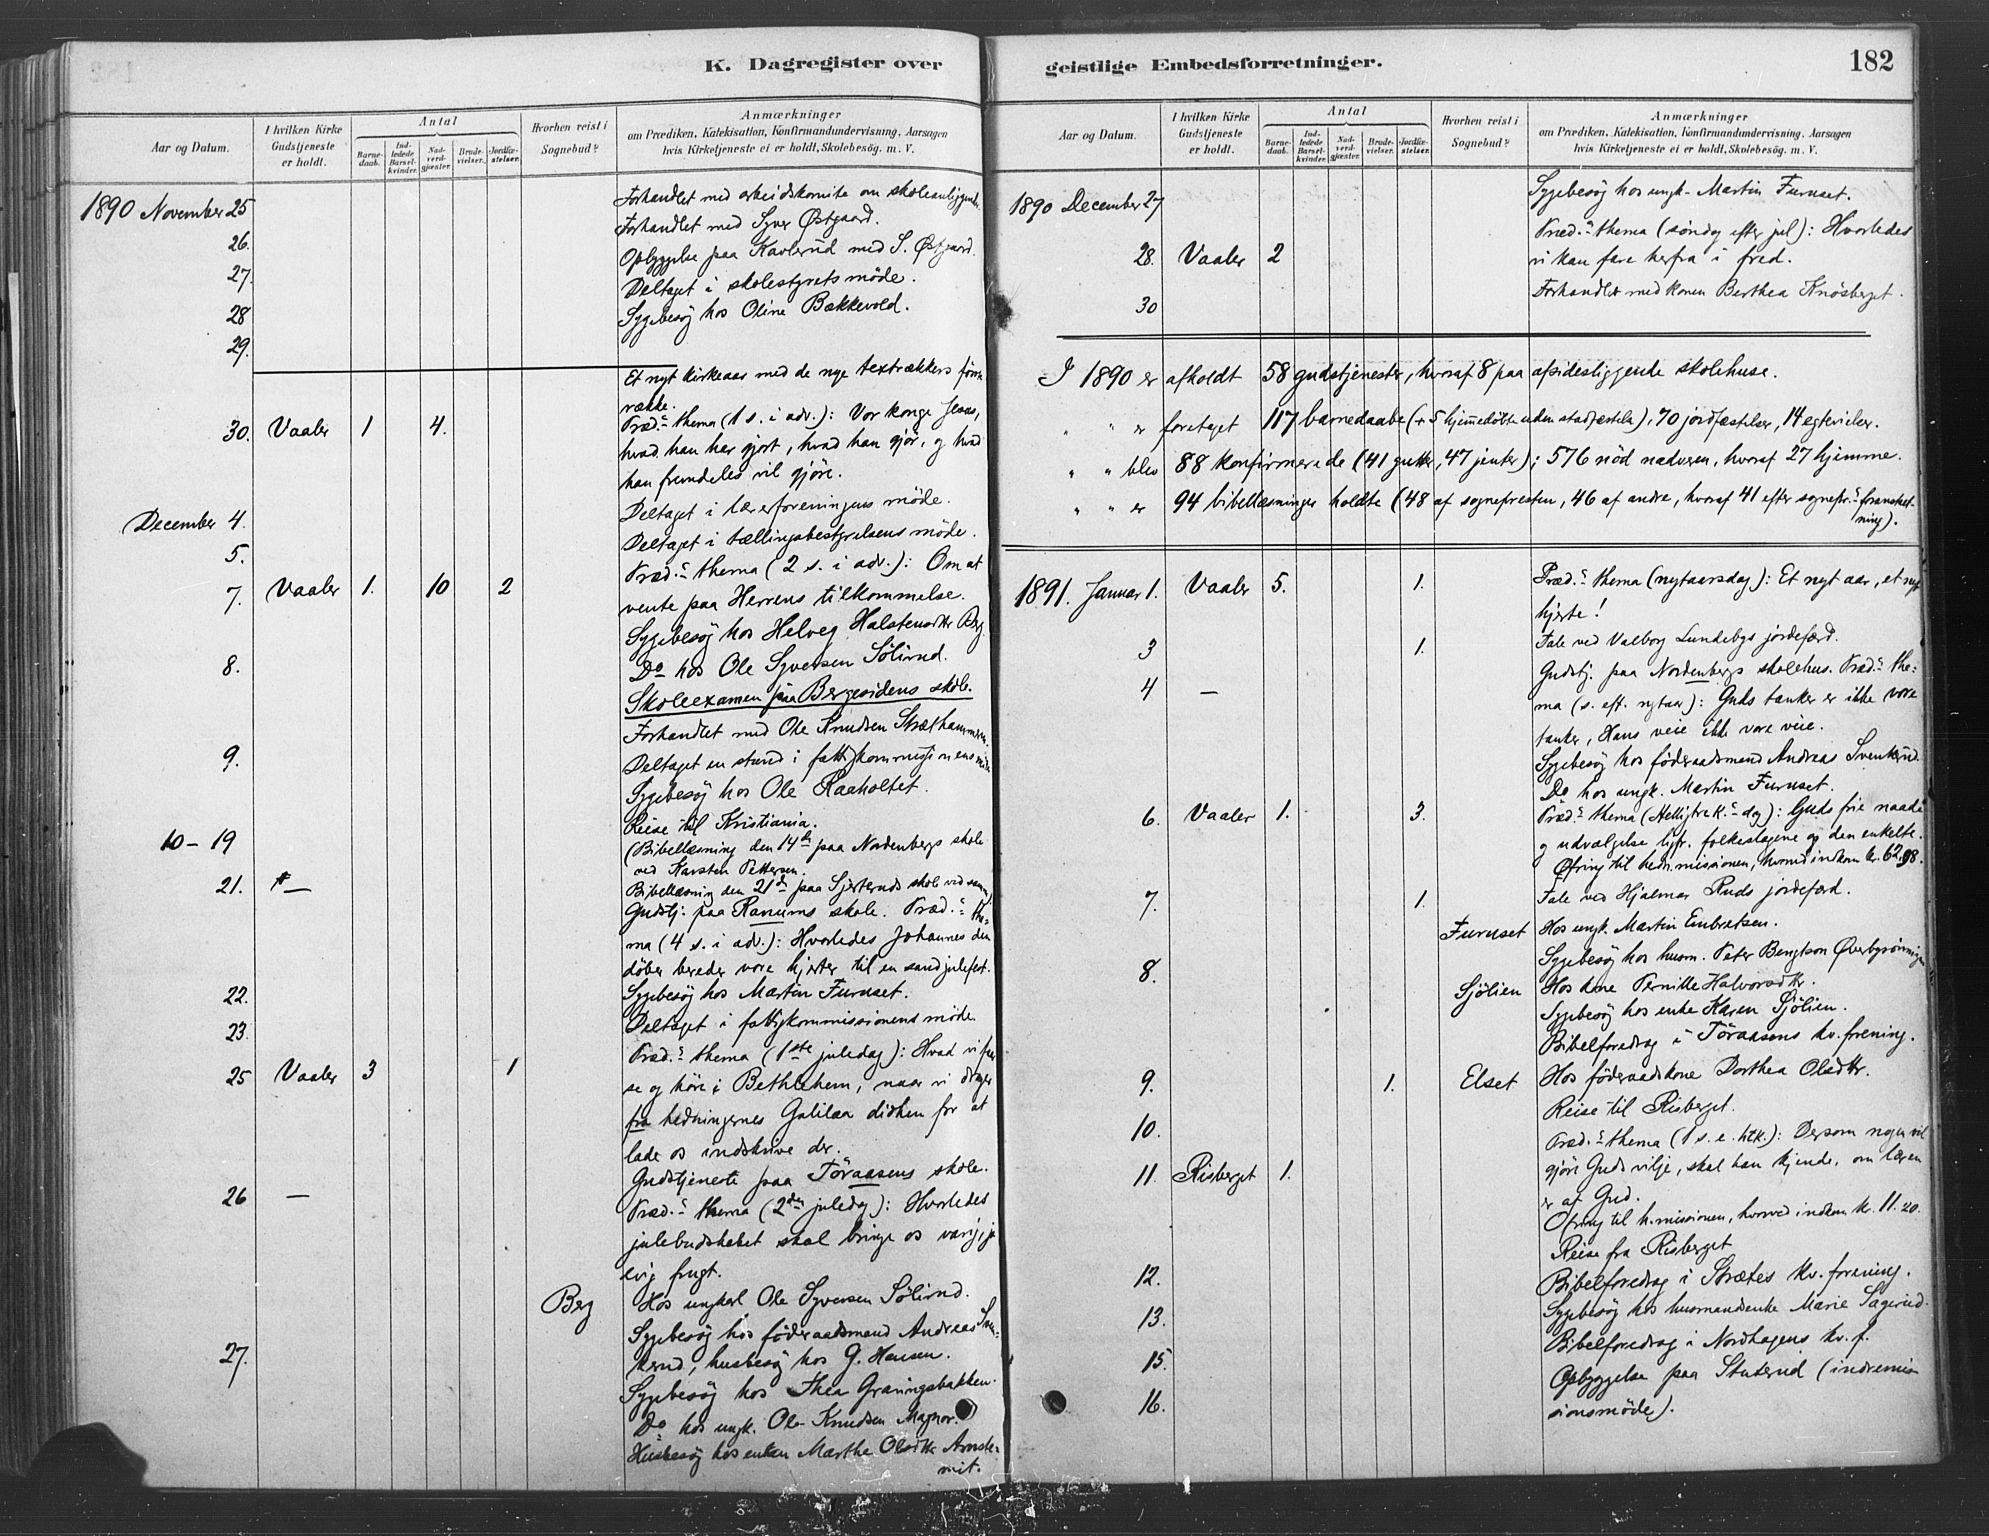 K. Dagregister over
Aar og Datum.
I hvilken Kirke Gudstjeneste er holdt.
Antal
Barne-daab.
Ind-ledede Barsel-kvinder.
Nad-verd-gjæster.
Brude-vielser.
Jordfæ-stelser.
Hvorhen reist i Sognebud?
Anmærkninger
om Prædiken, Katekisation, Konfirmandundervisning, Aarsagen
hvis Kirketjeneste ei er holdt, Skolebesøg. m. V.
1890 November 25 Forhandlet med arbeidskomite om skoleanliggender.
Forhandlet med Syver Østgaard.
26. Opbyggelse paa Kavlerud med S. Østgaard.
27. Deltaget i skolestyrets møde.
28 Sygebesøg hos Oline Bækkevold.
29.
Et nyt kirkeaar med de nye textrækkers første
række.
30. Vaaler 1 4. Præd.s thema (1 s. i adv.): Vor konge Jesus,
hvad han har gjort, hvad han gjør, og hvad
han fremdeles vil gjøre.
December 4. Deltaget i lærerforeningens møde.
5. Deltaget i tællingsbestyrelsens møde.
7. Vaaler 1. 10 2 Præd.s thema (2 s. i adv.): Om at
vente paa Herrens tilkommelse.
Sygebesøg hos Helveg Halstensdtr Berg.
8. Do hos Ole Syversen Sölirud.
Skoleexamen paa Bergesidens skole.
Forhandlet med Ole Knudsen Stræthammeren.
9. Deltaget en stund i fattigkommissionens møde
Sygebesøg hos Ole Raaholtet.
10 – 19 Reise til Kristiania.
(Bibellæsning den 14de paa Nordenbergs skole
ved Karsten Pettersen.
Bibellæsning den 21de paa skole ved samme)
21. — Gudstj. paa Ranums skole. Præd.s the-
ma (4 s. i adv.): Hvorledes Johannes den
døber bereder vore hjerter til en sand julefest.
22. Sygebesøg hos Martin Furuset.
23. Deltaget i fattigkommissionens møde.
25 Vaaler 3 1 Præd.s thema (1ste juledag): Hvad vi faar
se og høre i Bethlehem, naar vi drager
fra hedningernes Galilæa didhen for at
lade os indskrive der.
26 — Gudstjeneste paa Töraasens skole.
Præd.s thema (2den juledag): Hvorledes
julebudskabet skal bringe os varig, ja
evig frugt.
Berg Hos ungkarl Ole Syversen Sölirud.
27. Sygebesøg hos föderaadsmand Andreas Sven-
kerud, husbesøg hos G. Hansen.
Sygebesøg hos Thea Graningsbakken.
Do hos ungk. Ole Knudsen Magnor.
Husbesøg hos enken Marthe Olsdtr Arnste-
mit.
geistlige Embedsforretninger.
182
Aar og Datum.
I hvilken Kirke Gudstjeneste er holdt.
Antal
Barne-daab.
Ind-ledede Barsel-kvinder.
Nad-verd-gjæster.
Brude-vielser.
Jordfæ-stelser.
Hvorhen reist i Sognebud?
Anmærkninger
om Prædiken, Katekisation, Konfirmandundervisning. Aarsagen
hvis Kirketjeneste ei er holdt, Skolebesøg. m. V.
1890 December 27 Sygebesøg hos ungk. Martin Furuset.
28. Vaaler 2 Præd.s thema (søndag efter jul): Hvorledes
vi kan fare herfra i fred.
30 Forhandlet med konen Berthea Knösberget.
I 1890 er afholdt 58 gudstjenester, hvoraf 8 paa afsidesliggende skolehuse.
" " er foretaget 117 barnedaabe (+ 5 hjemmedøbte uden stadfæstelse), 70 jordfæstelser, 14 egtevielser.
" " blev 88 konfirmerede (41 gutter, 47 jenter); 576 nød nadveren, hvoraf 27 hjemme.
" " er 94 bibellæsninger holdte (48 af sognepresten, 46 af andre, hvoraf 41 efter sognepr.s foranstalt-
ning).
1891. Januar 1. Vaaler 5. 1. Præd.s thema (nytaarsdag): Et nyt aar, et nyt
hjerte!
3 1. Tale ved Valborg Lundebys jordefærd.
4 — Gudstj. paa Nordenbergs skolehus. Præd.s the-
ma (s. eft. nytaar): Guds tanker er ikke vore
tanker, Hans veie ikke vore veie.
Sygebesøg hos föderaadsmand Andreas Svenkerud.
Do hos ungk. Martin Furuset.
6. Vaaler 1. 3. Præd.s thema (Helligtrek.s-dag): Guds frie naade
og udvælgelse ligeovf. folkeslagene og den enkelte.
Ofring til hedn.missionen, hvorved indkom kr. 62.98.
7. 1. Tale ved Hjalmar Ruds jordefærd.
Furuset Hos ungk. Martin Embretsen.
8. Sygebesøg hos husm. Peter Bengtson Øverbyrönningen
Sjölien Hos kone Pernille Halvorsdtr.
Sygebesøg hos enke Karen Sjölien.
Bibelforedrag i Töraasens kv.forening.
9. 1. Elset Hos föderaadskone Dorthea Olsdtr.
10. Reise til Risberget.
11. Risberget 1. Præd.s thema (1 s. e. htk.): Dersom nogen vil
gjøre Guds vilje, skal han kjende, om læren
er af Gud.
Ofring til h.missionen, hvorved indkom kr. 11.20.
Reise fra Risberget
12. Bibelforedrag i Strætes kv.forening.
13. Sygebesøg hos husmandsenke Marie Sagerud.
15. Bibelforedrag i Nordhagens kv.f.
16. Opbyggelse paa Stuterud (indremis-
sionsmøde).